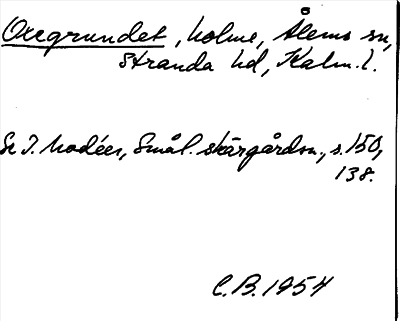 Oxegrundet, holme, Ålems sn,
Stranda hd, Kalm. l.
Se I. Modéer, Smål. skärgårdsn., s. 150,
138.
C.B. 1954